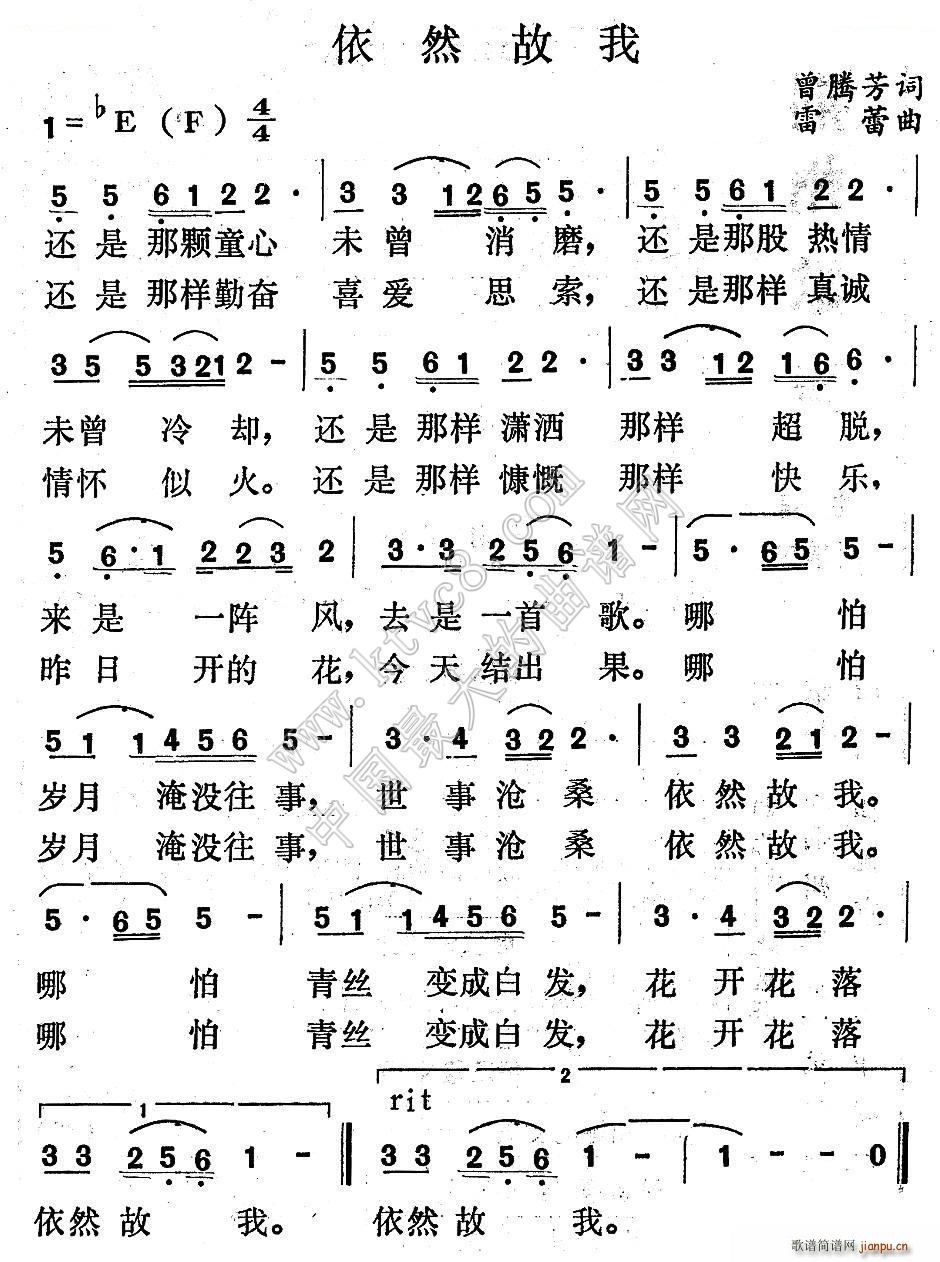 依然故我
曾腾芳词
1=♭E (F) 4/4
雷蕾曲
5 5 6 1 2 2 · | 3 3 1 2 6 5 5 · | 5 5 6 1 2 2 · |
还是那颗童心 未曾 消磨, 还是那股热情
还是那样勤奋 喜爱 思索, 还是那样真诚
3 5 5 3 2 1 2 - | 5 5 6 1 2 2 · | 3 3 1 2 1 6 6 · |
未曾 冷却, 还是那样潇洒 那样 超脱,
情怀 似火。还是那样慷慨 那样 快乐,
5 6 · 1 2 2 3 2 | 3 · 3 2 5 6 1 - | 5 · 6 5 5 - |
来是 一阵 风, 去是一首 歌。哪 怕
昨日 开的 花, 今天结出 果。哪 怕
5 1 1 4 5 6 5 - | 3 · 4 3 2 2 · | 3 3 2 1 2 - |
岁月 淹没往事, 世事沧桑 依然故我。
岁月 淹没往事, 世事沧桑 依然故我。
5 · 6 5 5 - | 5 1 1 4 5 6 5 - | 3 · 4 3 2 2 · |
哪 怕 青丝 变成白发, 花开花落
哪 怕 青丝 变成白发, 花开花落
1 2
rit
3 3 2 5 6 1 - ‖ 3 3 2 5 6 1 - | 1 - - 0 ‖
依然故 我。 依然故 我。
www.ktvc8.com
中国最大的曲谱网
歌谱简谱网 jianpu.cn